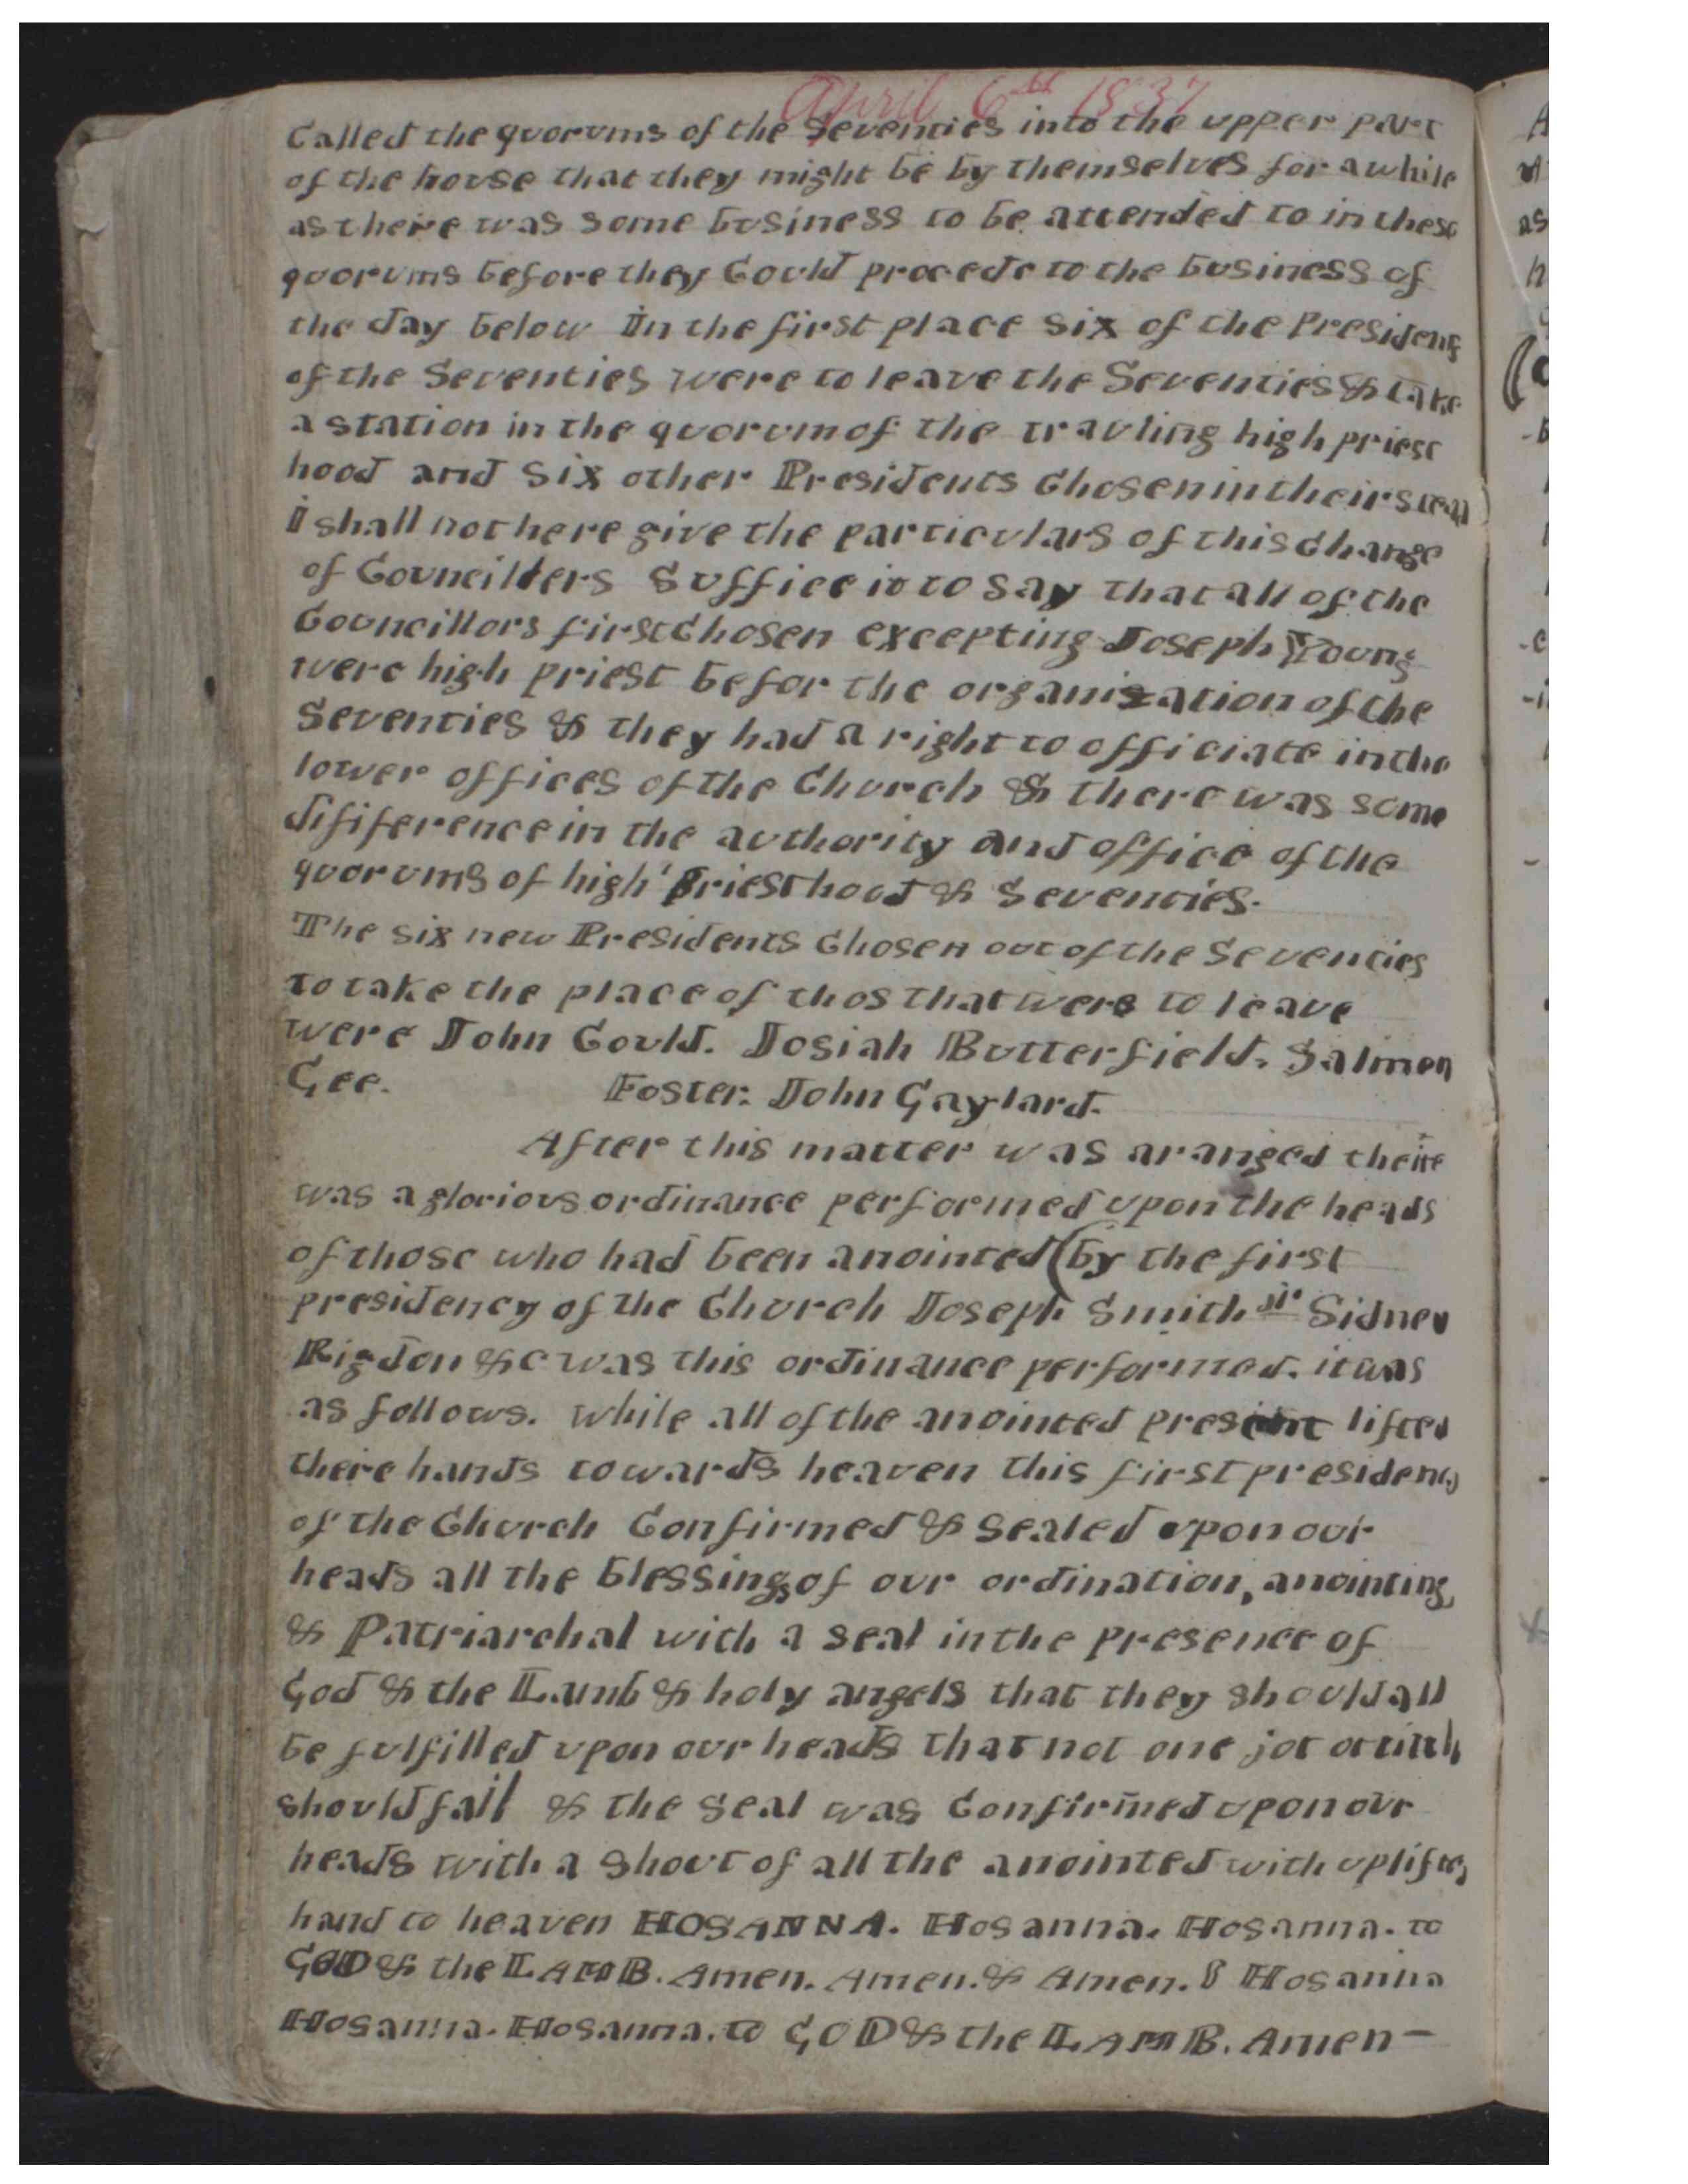 April 6th 1837
Called the quorums of the Seventies into the upper part
of the house that they might be by themselves for a while
as there was some business to be attended to in these
quorums before they Could procede to the business of
the day below In the first place six of the Presidents
of the Seventies were to leave the Seventies & take
a station in the quorum of the travling high priest
hood and six other Presidents Chosen in their stead
I shall not here give the particulars of this Change
of Councillers Suffice it to say that all of the
Councillors first Chosen excepting Joseph Young
were high priest befor the organization of the
Seventies & they had a right to officiate in the
lower offices of the Church & there was some
difiference in the authority and office of the
quorums of high Priesthood & Seventies.
The six new Presidents Chosen out of the Seventies
to take the place of thos that were to leave
were John Gould. Josiah Butterfield. Salmon
Gee. Foster. John Gaylard.
After this matter was aranged there
was a glorious ordinance performed upon the heads
of those who had been anointed (by the first
presidency of the Church Joseph Smith jr Sidney
Rigdon &c was this ordinance performed. it was
as follows. while all of the anointed present lifted
there hands towards heaven this first presidency
of the Church Confirmed & sealed upon our
heads all the blessings of our ordination, anointing,
& Patriarchal with a seal in the presence of
God & the Lamb & holy angels that they should all
be fulfilled upon our heads that not one jot or tittle
should fail & the seal was Confirmed upon our
heads with a shout of all the anointed with uplifted
hand to heaven HOSANNA. Hosanna. Hosanna. to
GOD & the LAMB. Amen. Amen. & Amen. Hosanna
Hosanna. Hosanna. to GOD & the LAMB. Amen-